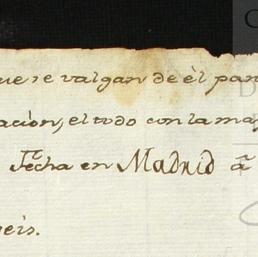 ue se valgan de èl par
acion, el todo con la ma
Fecha en Madrid a
eis.